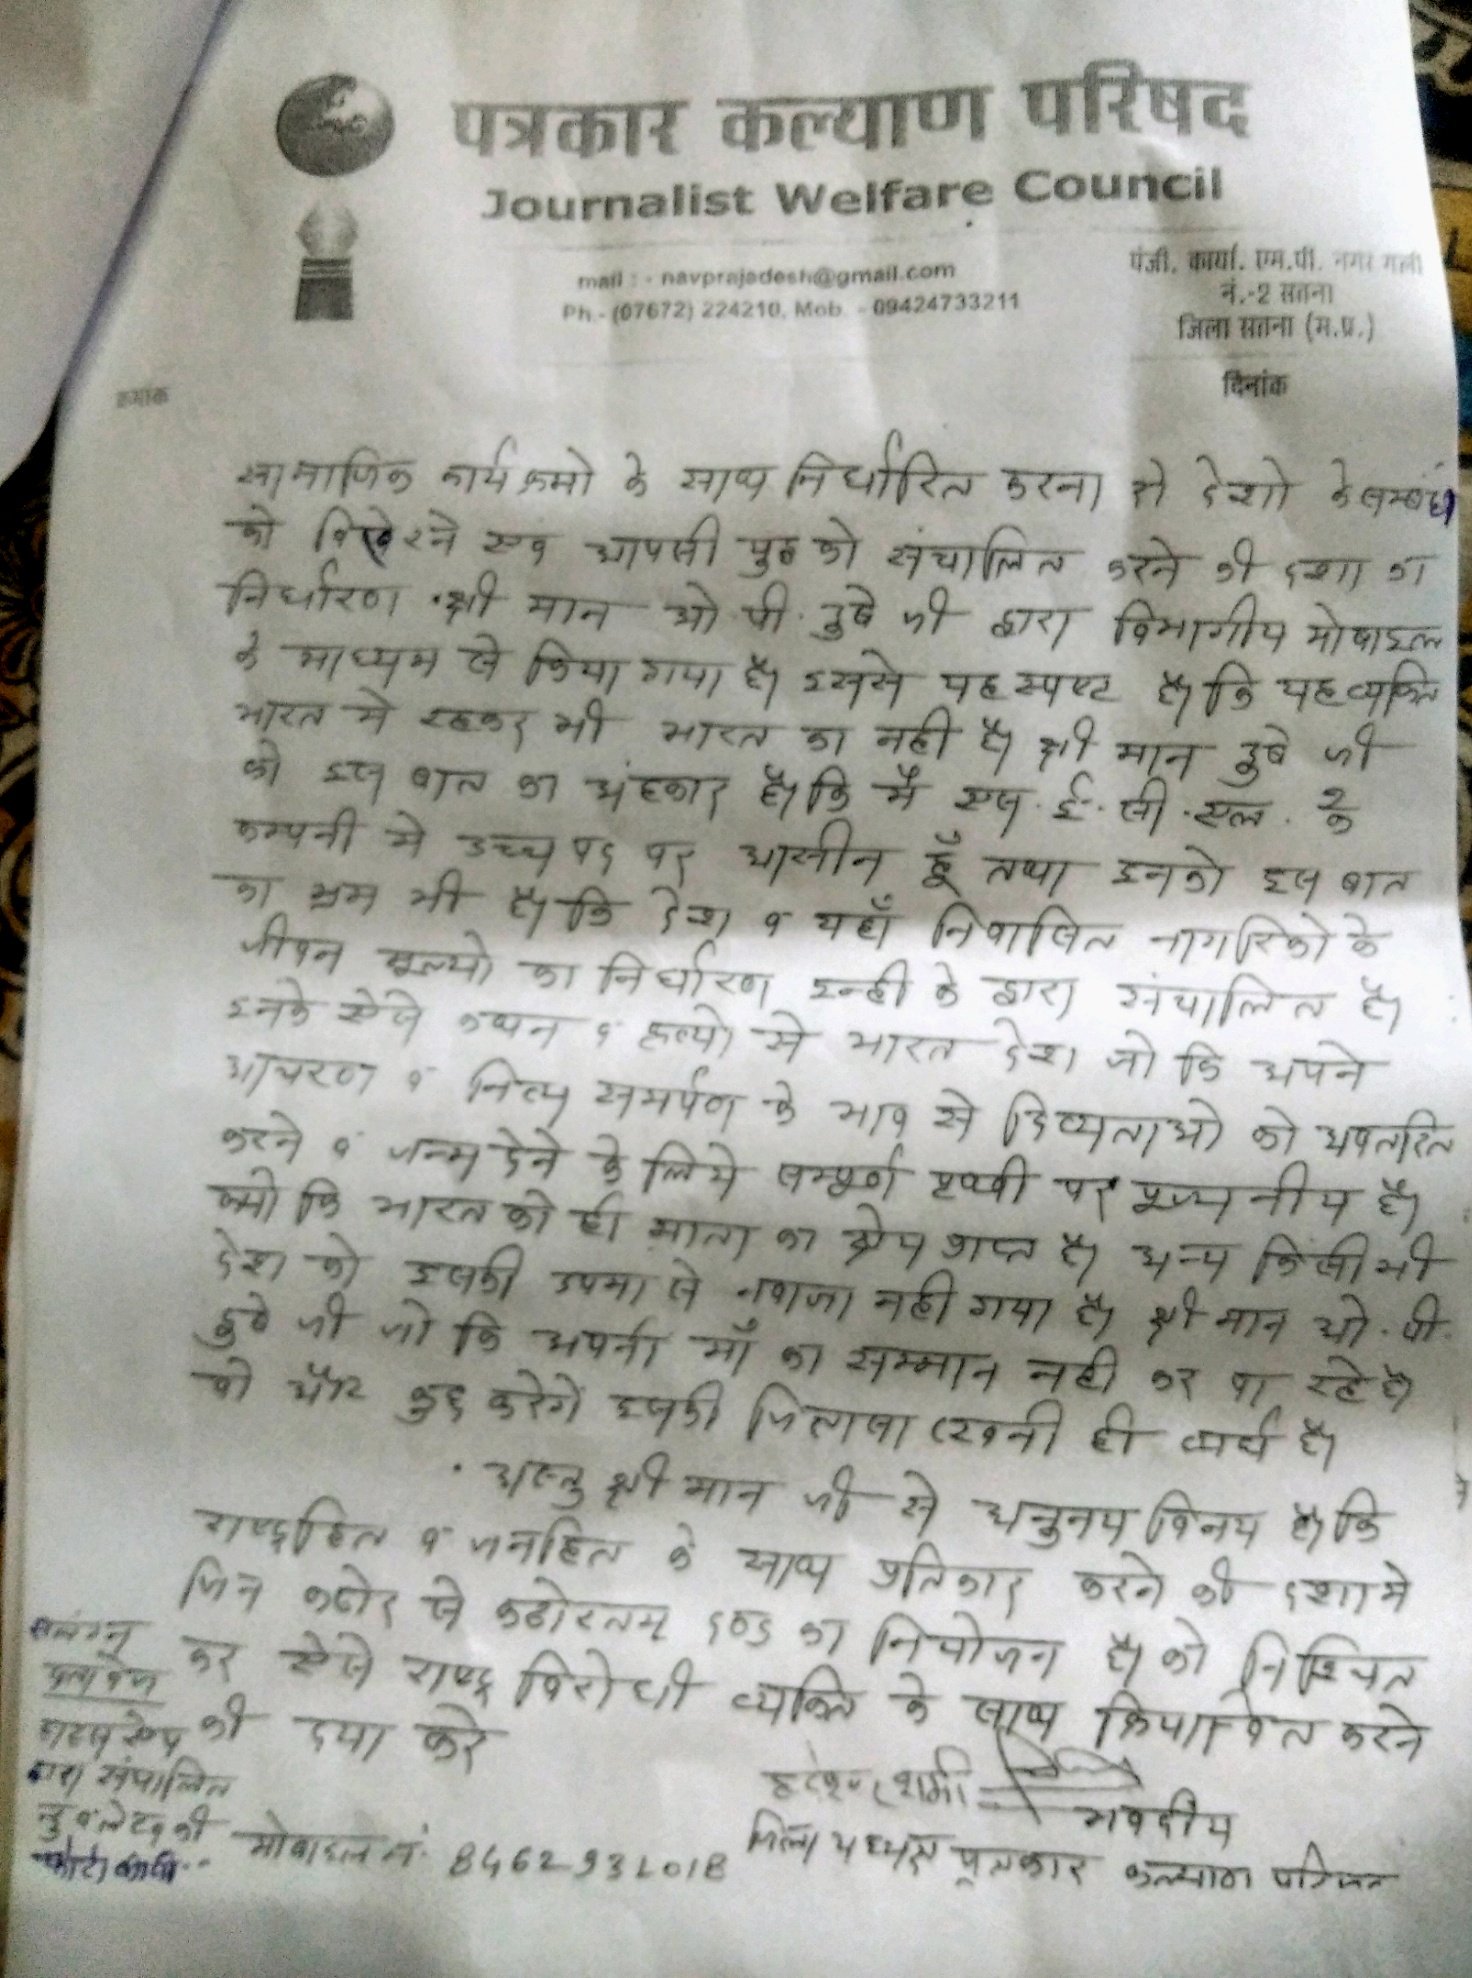 पत्रकार कल्याण परिषद
Journalist Welfare Council
mail : - navprajadesh@gmail.com
Ph.- (07672) 224210, Mob. - 09424733211
पंजी. कार्या. एम.पी. नगर गली
नं.-2 सतना
जिला सतना (म.प्र.)
क्रमांक
दिनांक
सामाजिक कार्यक्रमो के साथ निर्धारित करना दो देशो के सम्बंध
को बिखेरने एव आपसी युद्ध को संचालित करने की दशा का
निर्धारण श्री मान ओ.पी. दुबे जी द्वारा विभागीय मोबाइल
के माध्यम से किया गया है। इससे यह स्पष्ट है। कि यह व्यक्ति
भारत मे रहकर भी भारत का नही है। श्री मान दुबे जी
को इस बात का अंहकार है। कि मैं एस. ई. सी. एल. के
कम्पनी मे उच्च पद पर आसीन हूँ तथा इनको इस बात
का भ्रम भी है। कि देश व यहाँ निवासित नागरिको के
जीवन मूल्यो का निर्धारण इन्ही के द्वारा संचालित है।
इनके ऐसे कथन व कृत्यो से भारत देश जो कि अपने
आचरण व नित्य समर्पण के भाव से दिव्यताओ को अवतरित
करने व जन्म देने के लिये सम्पूर्ण पृथ्वी पर पूज्यनीय है।
क्यो कि भारत को ही माता का श्रेय प्राप्त है। अन्य किसी भी
देश को इसकी उपमा से नवाजा नही गया है। श्री मान ओ.पी.
दुबे जी जो कि अपनी माँ का सम्मान नही कर पा रहे है।
वो और कुछ करेगें इसकी जिज्ञासा रखनी ही व्यर्थ है।
अस्तु श्री मान जी से अनुनय विनय है। कि
राष्ट्रहित व जनहित के साथ प्रतिकार करने की दशा मे
जिन कठोर से कठोरतम दण्ड का नियोजन है। को निश्चित
कर ऐसे राष्ट्र विरोधी व्यक्ति के साथ क्रियान्वित करने
की दया करे
संलग्न
वाटसएप
द्वारा संचालित
की
फोटो कापी..
मोबाइल नं. 8462931018
शर्मा
भवदीय
जिला अध्यक्ष पत्रकार कल्याण परिषद